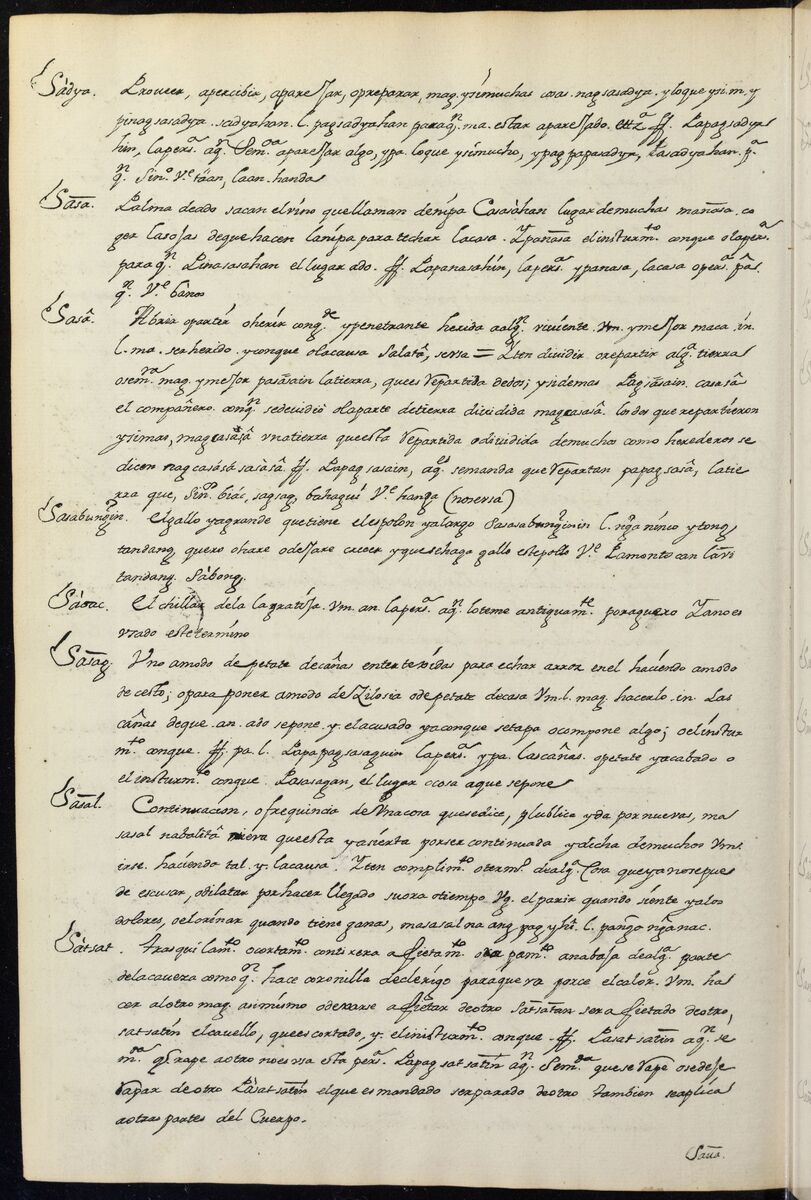 Sádya. Proveer, apercibir, aparejar, o preparar, mag. ysi muchas cosas. nagsasadya. y loque ysi. m. y
pinagsasadya. sadyahan. l. pagsadyahan para qn. ma. estar aparejado. ettᶻ ff. Papagsadya
hin, la persᵃ aqn. Semᵈᵃ aparejar algo, ypa. loque ysi mucho, ypagpapasadya, Pasadyahan. pᵃ
qn. Sinᵒ. Vᵉ táan, laan. handa
Sasa. Palma de ado sacan el vino que llaman de nipa Casasahan lugar de muchas mañasa. co
ger las ojas de que hacen la nipa para techar la casa. Ypanasa el insturmᵗᵒ con que o la persᵃ
para qn. Pinasasahan el lugar ado. ff. Papanasahin, la persᵃ ypanasa, la casa o persᵃ pᵃ
qn. Vᵉ bános
Sasâ. Abrir o partir o herir con gᵈᵉ y penetrante herida a algn. viviente. Vm. y mejor maca. in.
l. ma. ser herido. y con que o la causa Salatâ, sersa = Yten dividir o repartir algᵃ tierra
o semᵗᵃ mag. y mejor pasâsain la tierra, que es repartida de dos; y si de mas Pagsâsain. casasâ
el compañero con qn. se dividió o la parte de tierra dividida magcasasâ. los dos que repartieron
y si mas, magcasâsâ una tierra que esta repartida o dividida de muchos como herederos se
dicen nagcasásá sasâsâ. ff. Papagsasain, aqᵉˢ se manda que repartan papagsasâ, la tie
rra que, Sinᵒ. biác, sagsag, bahagui Vᵉ hanga (no sersa)
Sasabungin. El gallo ya grande que tiene el espolon ya largo Sasabunginin l. nga ninco ytong
tandang quero o hare o dejare crecer y que se haga gallo este pollo Vᵉ Pamonto can lavi
tandang. Sábong.
Sásac. El chillar de la lagratija. Vm. an. la persᵃ aqn. lo teme antiguamᵗᵉ por aguero Ya no es
usado este termino
Sasag. Uno a modo de petate de cañas entertexidas para echar arros en el haciendo a modo
de cesto; o para poner a modo de Zilosia o de petate de casa Vm. l. mag. hacerlo. in. Las
cañas de que. an. ado se pone. y. el acusado ya con que se tapa o compone algo; o el instur
mᵗᵒ con que. ff. pa. l. Papapagsasaguin la persᵃ ypa. las cañas. o petate ya acabado o
el insturmᵗᵒ con que. Pasasagan, el lugar o cosa a que se pone
Sasal. Continuacion, o frequincia de una cosa que se dice, publica y da por nuevas, ma
sasal nabalitâ nueva que esta ya sierta por ser continuada y dicha de muchos Vm.
irse. haciendo tal. y. la causa. Yten complimᵗᵒ o termᵒ de algᵃ Cosa que ya no se pue
de escusar, o dilatar por haver llegado su ora o tiempo. Vg. el parir quando siente ya los
dolores, o el orinar quando tiene ganas, masasal na ang pag yhî. l. panganganac.
Sátsat. Trasquilamᵗᵒ o cortamᵗᵒ con tixera afeitamᵗᵒ o rapamᵗᵒ a nabaja de algᵃ parte
de la cavera como qn. hace coronilla de clerigo para que va por ce el calor. Vm. ha
cer al otro mag. asi mismo o dexarse afeitar de otro Satsatan ser afietado de otro,
satsatin el cavello, que es cortado, y. el insturmᵗᵒ con que. ff. Pasatsatin aqn. se
mᵈᵃ q̃ rape a otro no es usa esta persᵃ Papagsatsatin aqn. Semᵈᵃ que se rape o se deje
rapar de otro Pasatsatin el que es mandado ser parado de otro tambien se aplica
a otras partes del Cuerpo.
Saua.